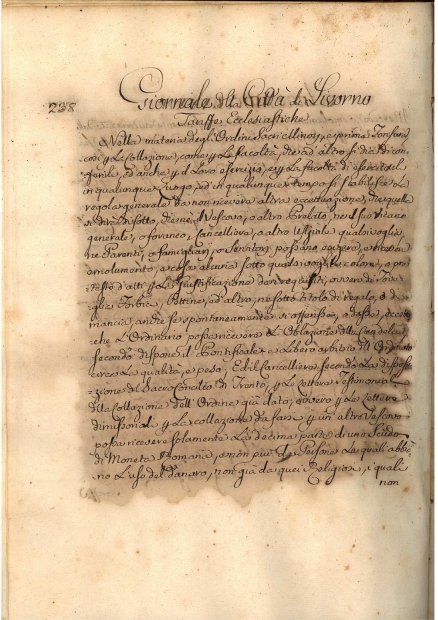 238
Giornale della Città di Livorno
Tariffe Ecclesiastiche
Nella materia degl'Ordini Sacri Minori, e prima Tonsura
così per la Collazione, come per la facoltà, che ad altro si dia di con-
ferirli, ed anche per il loro esercizio, e per la facoltà di esercitarli
in qualunque Luogo, ed in qualunque tempo si stabilisce per
regola generale da non ricevere altra eccettuazione, che quella
si dirà di sotto, che niun Vescovo, o altro Prelato, ne il suo Vicario
generale, o foraneo, Cancelliere, o altro Uffiziale qualsivoglia,
ne Parenti, o famigliari, o Servitori possano esigere, o
emolumento, cosa alcuna sotto qualsivoglia colore, o pre-
testo d'atti per la Giustificazione dei requisiti, ovvero di Ton-
sura, Forbici, Pettine, ed altro, ne sotto titolo di regalo, o di
mancia, anche se spontaneamente si offerisse, o dasse, eccetto
che l'Ordinario possa ricevere l'Oblazione della Candela
secondo dispone il Pontificale, e libero arbitrio dell'Ordinato
circa la qualità, e peso, Ed il Cancelliere secondo la dispo-
sizione del Sacro Concilio di Trento, per le lettere Testimoniali
della Collazione dell'Ordine già dato, ovvero per le lettere
dimissoriali per la collazione da farsi per un altro Vescovo
possa ricevere solamente la decima parte di uno Scudo
di Moneta Romana, e non più da Persone le quali abbia-
no l'uso del danaro, non già da quei Religiosi, i quali
non